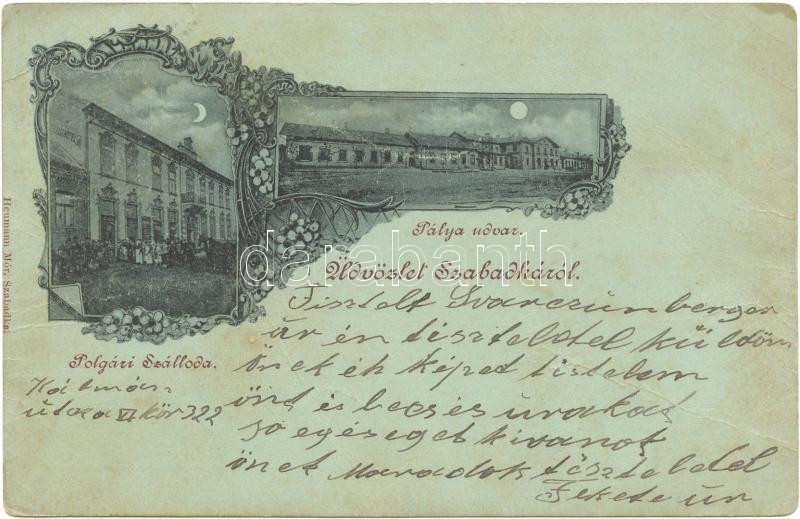 Pálya udvar.
Üdvözlet Szabadkáról.
Polgári Szálloda.
Heumann Mór, Szabadka.
darabanth
Tisztelt Svarczunberger
úr én tiszteldtel küldöm
önek éh képed tistelem
önt és becsés úrakat
jo egéséget kivanok
önek Maradok tésztelettel
Fekete úr
Kálmán
útcza VI kör 322